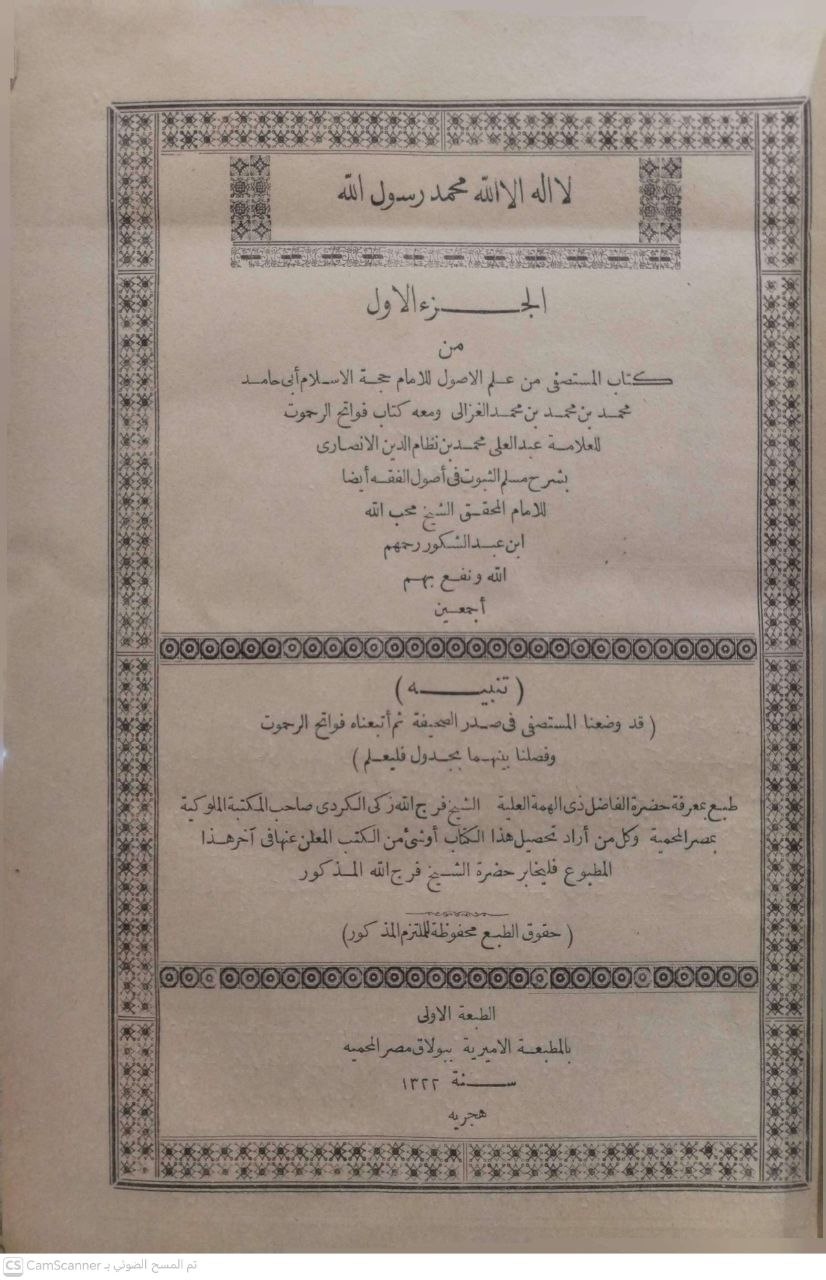 لا اله الا الله محمد رسول الله
الجزء الاول
من
كتاب المستصفى من علم الاصول للامام حجة الاسلام أبى حامد
محمد بن محمد بن محمد الغزالى ومعه كتاب فواتح الرحموت
للعلامة عبد العلى محمد بن نظام الدين الانصارى
بشرح مسلم الثبوت فى أصول الفقه أيضا
للامام المحقق الشيخ محب الله
ابن عبد الشكور رحمهم
الله ونفع بهم
أجمعين
(تنبيه)
(قد وضعنا المستصفى فى صدر الصحيفة ثم أتبعناه فواتح الرحموت
وفصلنا بينهما بجدول فليعلم)
طبع بمعرفة حضرة الفاضل ذى الهمة العلية الشيخ فرج الله زكى الكردى صاحب المكتبة الملوكية
بمصر المحمية وكل من أراد تحصيل هذا الكتاب أوشئ من الكتب المعلن عنها فى آخر هذا
المطبوع فليخابر حضرة الشيخ فرج الله المذكور
(حقوق الطبع محفوظة للملتزم المذكور)
الطبعة الاولى
بالمطبعة الاميرية ببولاق مصر المحميه
سنة ١٣٢٢
هجريه
CS CamScanner تم المسح الضوئي بـ